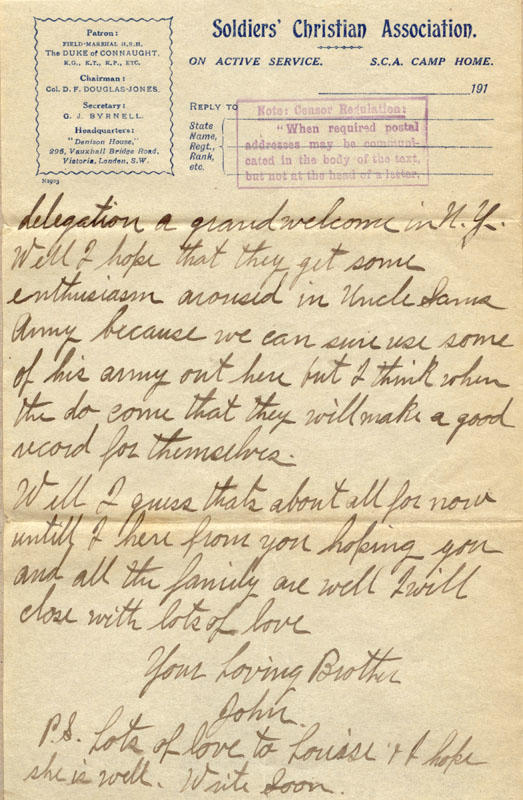 Patron:
FIELD-MARSHAL H.R.H.
The DUKE OF CONNAUGHT.
K.G., K.T., K.P., ETC.
Chairman:
Col. D. F. DOUGLAS-JONES.
Secretary:
G. J. BYRNELL.
Headquarters:
"Denison House,"
296, Vauxhall Bridge Road,
Victoria, London, S.W.
N1903
Soldiers' Christian Association.
ON ACTIVE SERVICE. S.C.A. CAMP HOME.
191
REPLY TO
State
Name,
Regt.,
Rank,
etc.
Note: Censor Regulation:
"When required postal
addresses may be communi-
cated in the body of the text,
but not at the head of a letter.
delegation a grand welcome in N.Y.
Well I hope that they get some
enthusiasm aroused in Uncle Sams
Army because we can sure use some
of his army out here but I think when
the do come that they will make a good
record for themselves.
Well I guess thats about all for now
untill I here from you hoping you
and all the family are well I will
close with lots of love
Your Loving Brother
John.
P.S. Lots of love to Louisse & I hope
she is well. Write Soon.